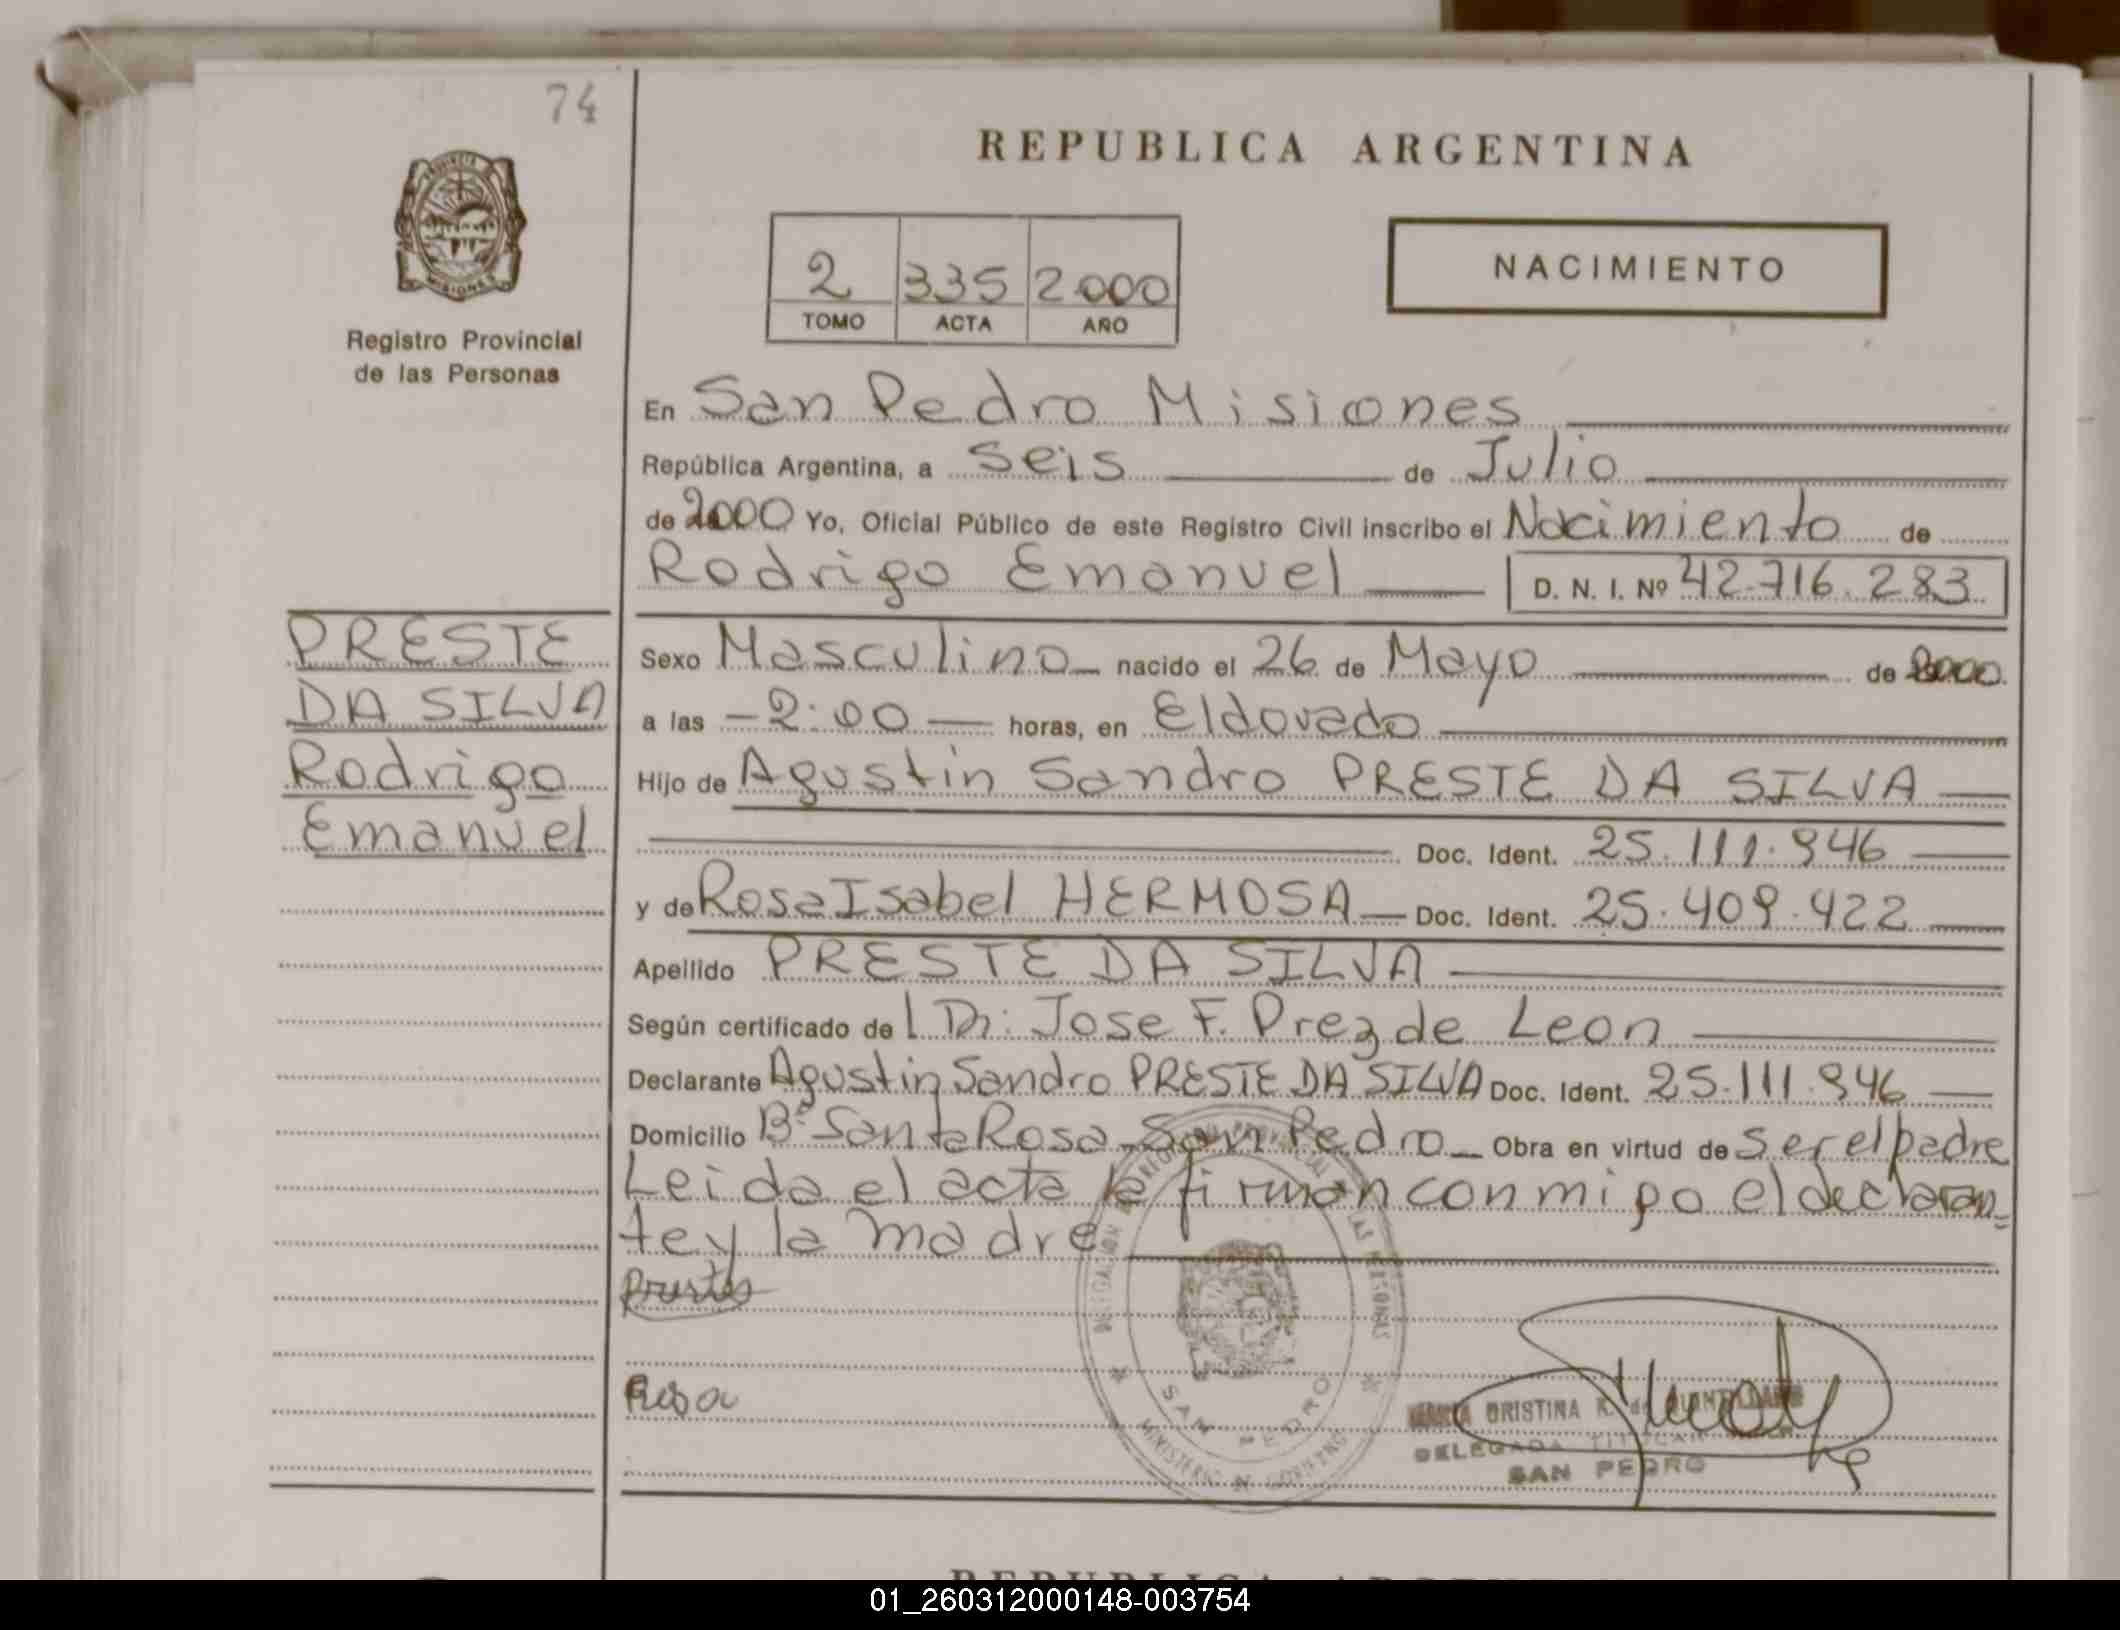 74
REPUBLICA ARGENTINA
PROVINCIA
MISIONES
Registro Provincial
de las Personas
2 335 2000
TOMO ACTA AÑO
NACIMIENTO
En San Pedro Misiones
República Argentina, a Seis de Julio
de 2000 Yo, Oficial Público de este Registro Civil inscribo el Nacimiento de
Rodrigo Emanuel D. N. I. Nº 42.716.283
PRESTE
DA SILVA
Rodrigo
Emanuel
Sexo Masculino nacido el 26 de Mayo de 2000
a las -2:00- horas, en Eldorado
Hijo de Agustin Sandro PRESTE DA SILVA
Doc. Ident. 25.111.946
y de Rosa Isabel HERMOSA Doc. Ident. 25.409.422
Apellido PRESTE DA SILVA
Según certificado de Dr: Jose F. Prez de Leon
Declarante Agustin Sandro PRESTE DA SILVA Doc. Ident. 25.111.946
Domicilio Bº Santa Rosa San Pedro Obra en virtud de Ser el padre
Leida el acta la firman conmigo el declaran=
te y la madre
Rosa
SAN PEDRO
MINISTERIO DE GOBIERNO
MARIA CRISTINA K. de
DELEGADA TITULAR
SAN PEDRO
REPUBLICA ARGENTINA
01_260312000148-003754